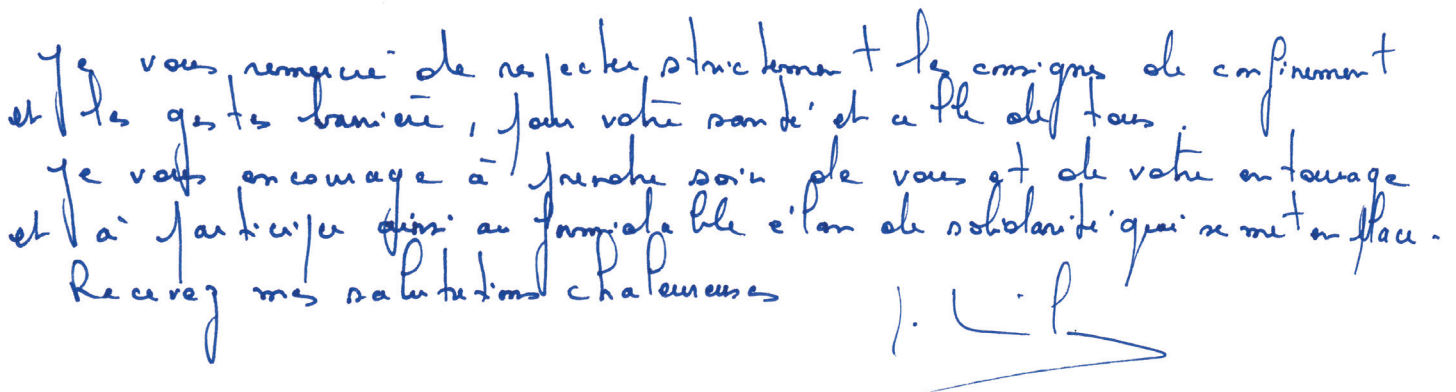 Je vous remercie de respecter strictement les consignes de confinement
et les gestes barrière, pour votre santé et celle de tous.
Je vous encourage à prendre soin de vous et de votre entourage
et à participer ainsi au formidable élan de solidarité qui se met en place.
Recevez mes salutations chaleureuses